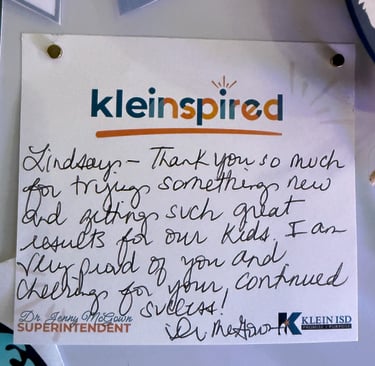 kleinspired
Lindsay - Thank you so much
for trying something new
and getting such great
results for our kids. I am
very proud of you and
cheering for your continued
success!
Dr. McGown
Dr. Jenny McGown
SUPERINTENDENT
KLEIN ISD
PROMISE 2 PURPOSE